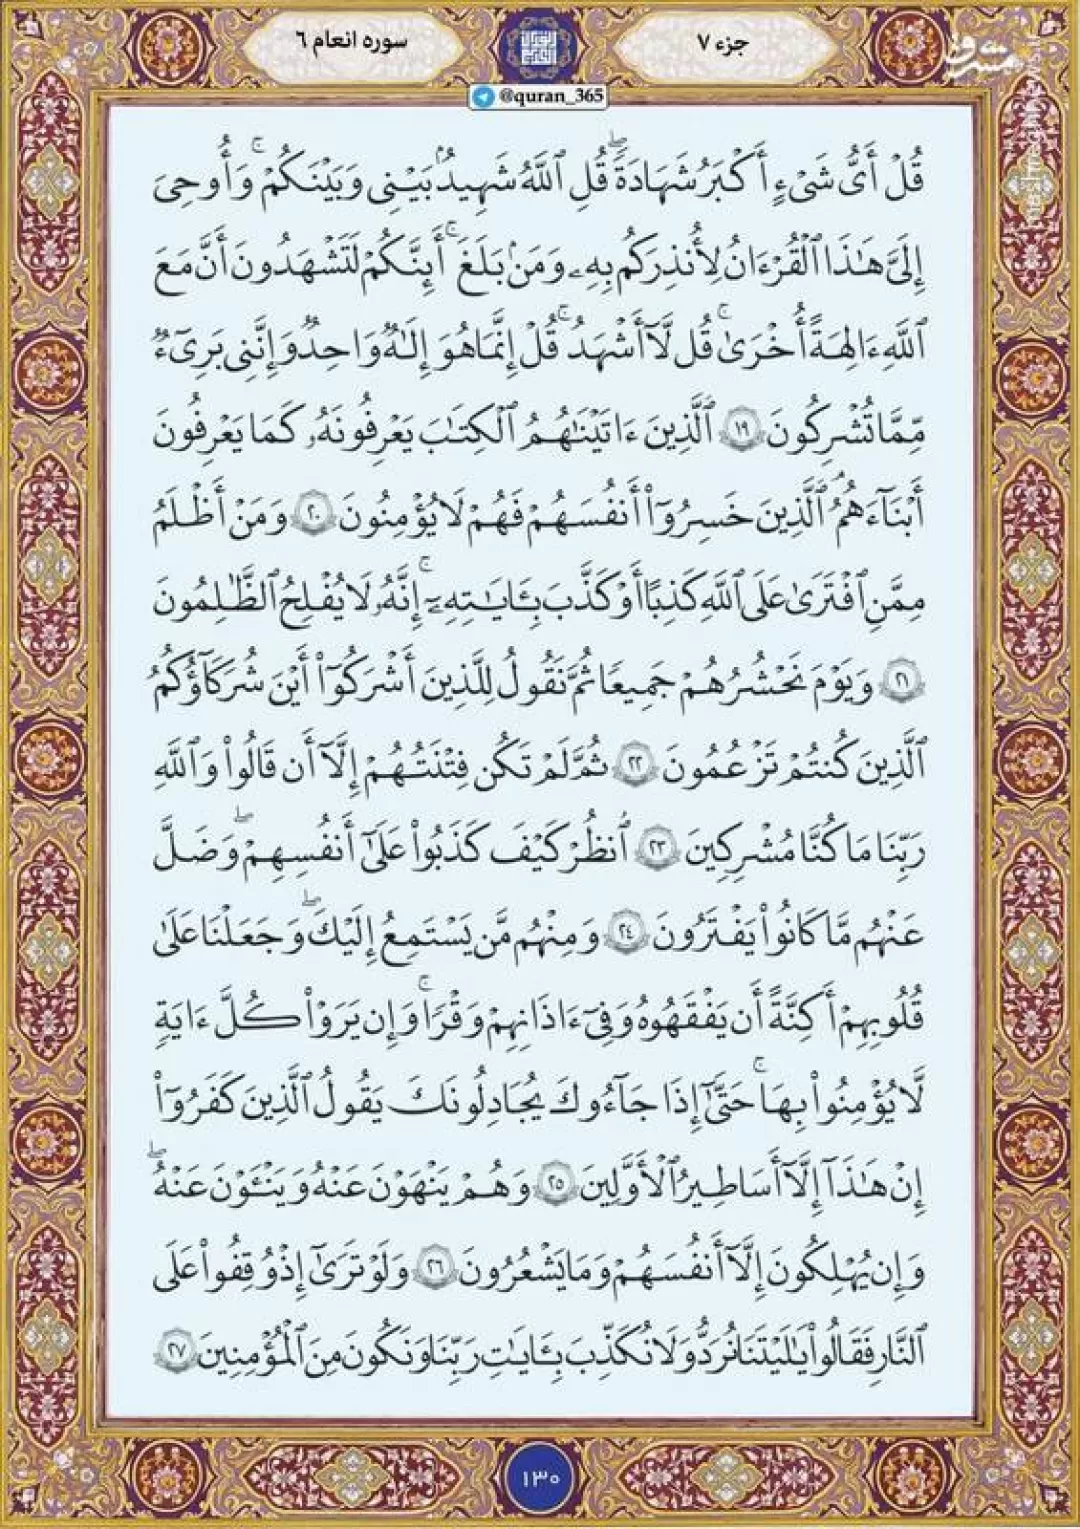 جزء ۷
سوره انعام ۶
مشرق
mashreghnews.ir
@quran_365
قُلْ أَىُّ شَىْءٍ أَكْبَرُ شَهَٰدَةً ۖ قُلِ ٱللَّهُ شَهِيدٌۢ بَيْنِى وَبَيْنَكُمْ ۚ وَأُوحِىَ
إِلَىَّ هَٰذَا ٱلْقُرْءَانُ لِأُنذِرَكُم بِهِۦ وَمَنۢ بَلَغَ ۚ أَئِنَّكُمْ لَتَشْهَدُونَ أَنَّ مَعَ
ٱللَّهِ ءَالِهَةً أُخْرَىٰ ۚ قُل لَّآ أَشْهَدُ ۚ قُلْ إِنَّمَا هُوَ إِلَٰهٌ وَٰحِدٌ وَإِنَّنِى بَرِىٓءٌ
مِّمَّا تُشْرِكُونَ ۝١٩ ٱلَّذِينَ ءَاتَيْنَٰهُمُ ٱلْكِتَٰبَ يَعْرِفُونَهُۥ كَمَا يَعْرِفُونَ
أَبْنَآءَهُمُ ۘ ٱلَّذِينَ خَسِرُوٓا۟ أَنفُسَهُمْ فَهُمْ لَا يُؤْمِنُونَ ۝٢٠ وَمَنْ أَظْلَمُ
مِمَّنِ ٱفْتَرَىٰ عَلَى ٱللَّهِ كَذِبًا أَوْ كَذَّبَ بِـَٔايَٰتِهِۦٓ ۗ إِنَّهُۥ لَا يُفْلِحُ ٱلظَّٰلِمُونَ
۝٢١ وَيَوْمَ نَحْشُرُهُمْ جَمِيعًا ثُمَّ نَقُولُ لِلَّذِينَ أَشْرَكُوٓا۟ أَيْنَ شُرَكَآؤُكُمُ
ٱلَّذِينَ كُنتُمْ تَزْعُمُونَ ۝٢٢ ثُمَّ لَمْ تَكُن فِتْنَتُهُمْ إِلَّآ أَن قَالُوا۟ وَٱللَّهِ
رَبِّنَا مَا كُنَّا مُشْرِكِينَ ۝٢٣ ٱنظُرْ كَيْفَ كَذَبُوا۟ عَلَىٰٓ أَنفُسِهِمْ ۖ وَضَلَّ
عَنْهُم مَّا كَانُوا۟ يَفْتَرُونَ ۝٢٤ وَمِنْهُم مَّن يَسْتَمِعُ إِلَيْكَ ۖ وَجَعَلْنَا عَلَىٰ
قُلُوبِهِمْ أَكِنَّةً أَن يَفْقَهُوهُ وَفِىٓ ءَاذَانِهِمْ وَقْرًا ۚ وَإِن يَرَوْا۟ كُلَّ ءَايَةٍ
لَّا يُؤْمِنُوا۟ بِهَا ۚ حَتَّىٰٓ إِذَا جَآءُوكَ يُجَٰدِلُونَكَ يَقُولُ ٱلَّذِينَ كَفَرُوٓا۟
إِنْ هَٰذَآ إِلَّآ أَسَٰطِيرُ ٱلْأَوَّلِينَ ۝٢٥ وَهُمْ يَنْهَوْنَ عَنْهُ وَيَنْـَٔوْنَ عَنْهُ ۖ
وَإِن يُهْلِكُونَ إِلَّآ أَنفُسَهُمْ وَمَا يَشْعُرُونَ ۝٢٦ وَلَوْ تَرَىٰٓ إِذْ وُقِفُوا۟ عَلَى
ٱلنَّارِ فَقَالُوا۟ يَٰلَيْتَنَا نُرَدُّ وَلَا نُكَذِّبَ بِـَٔايَٰتِ رَبِّنَا وَنَكُونَ مِنَ ٱلْمُؤْمِنِينَ ۝٢٧
۱۳۰